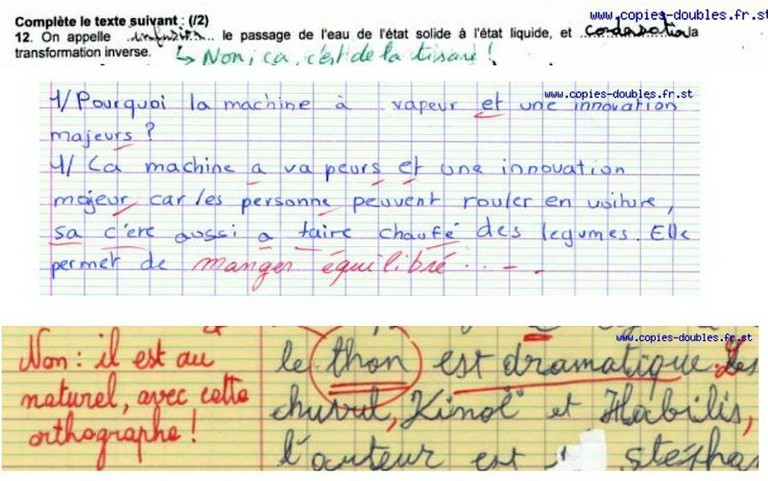 www.copies-doubles.fr.st
Complète le texte suivant : (/2)
12. On appelle ..infusion.. le passage de l'eau de l'état solide à l'état liquide, et la
transformation inverse.
↳ Non, ça, c'est de la tisane !
www.copies-doubles.fr.st
1/ Pourquoi la machine à vapeur et une innovation
majeurs ?
1/ La machine a va peurs et une innovation
majeur car les personne peuvent rouler en voiture,
sa c'ere aussi a faire chauffé des legumes. Elle
permet de manger équilibré . . - .
www.copies-doubles.fr.st
Non : il est au
naturel, avec cette
orthographe !
le thon est dramatique. Les
Kinol et Habilis,
l'auteur est